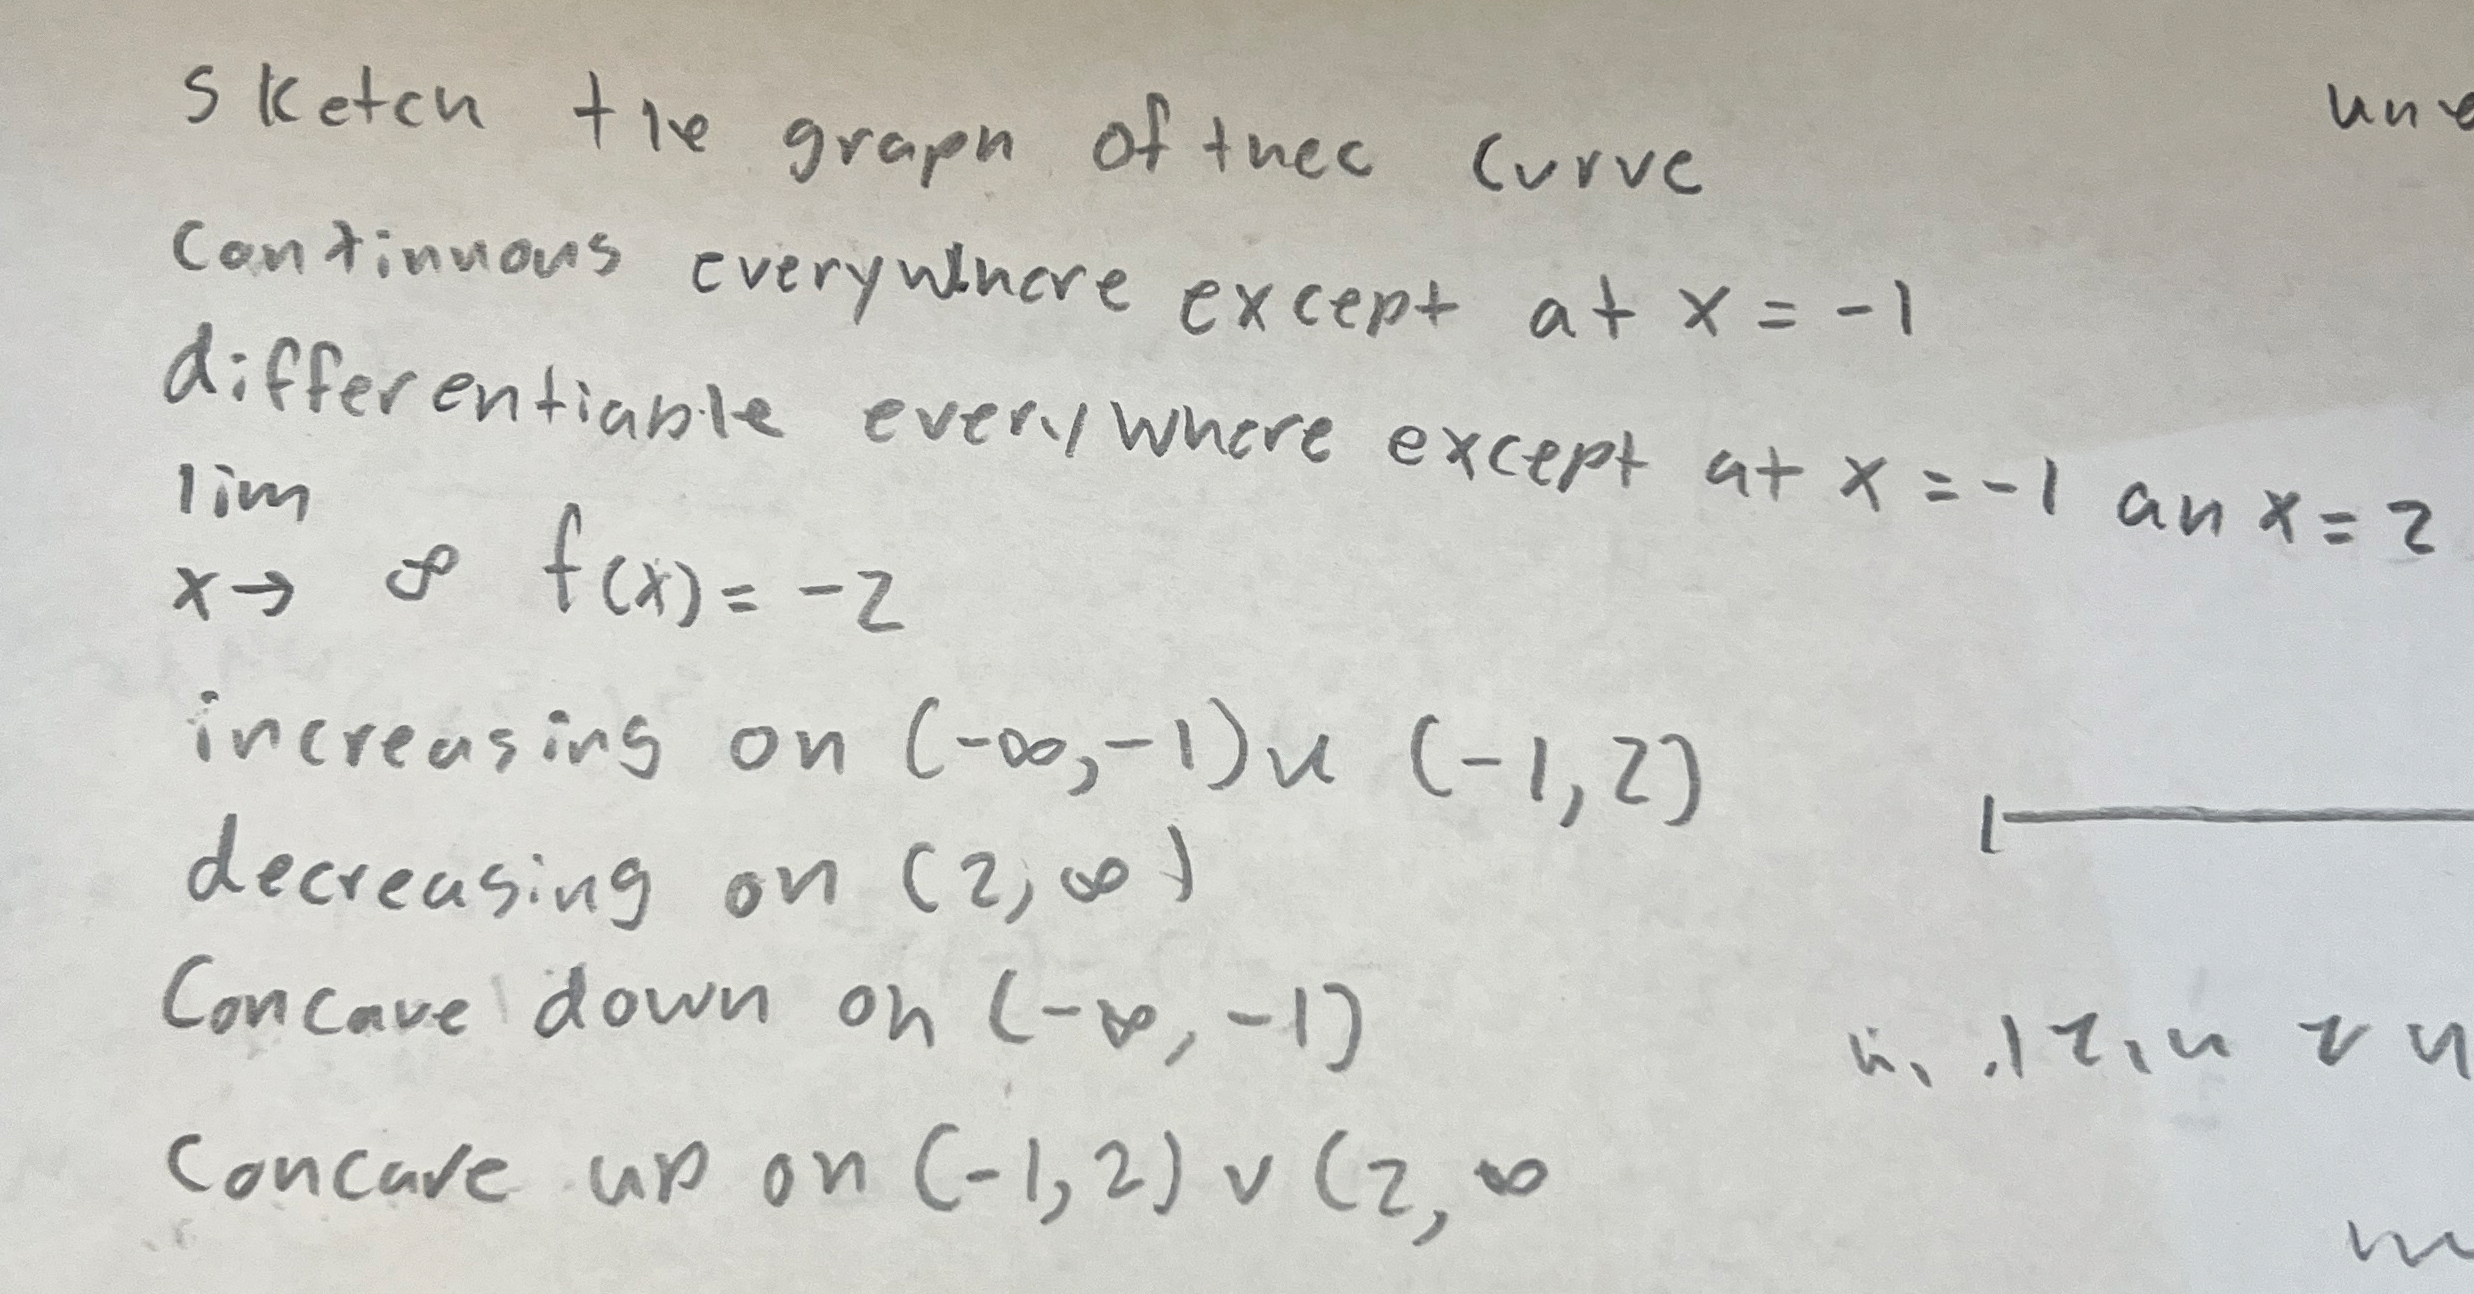 sketch the graph of thee curve
continuous everywhere except at x = -1
differentiable everywhere except at x = -1 an x = 2
lim
x → ∞ f(x) = -2
increasing on (-∞,-1)u (-1,2)
decreasing on (2,∞)
Concave down on (-∞,-1)
Concave up on (-1,2) v (2,∞